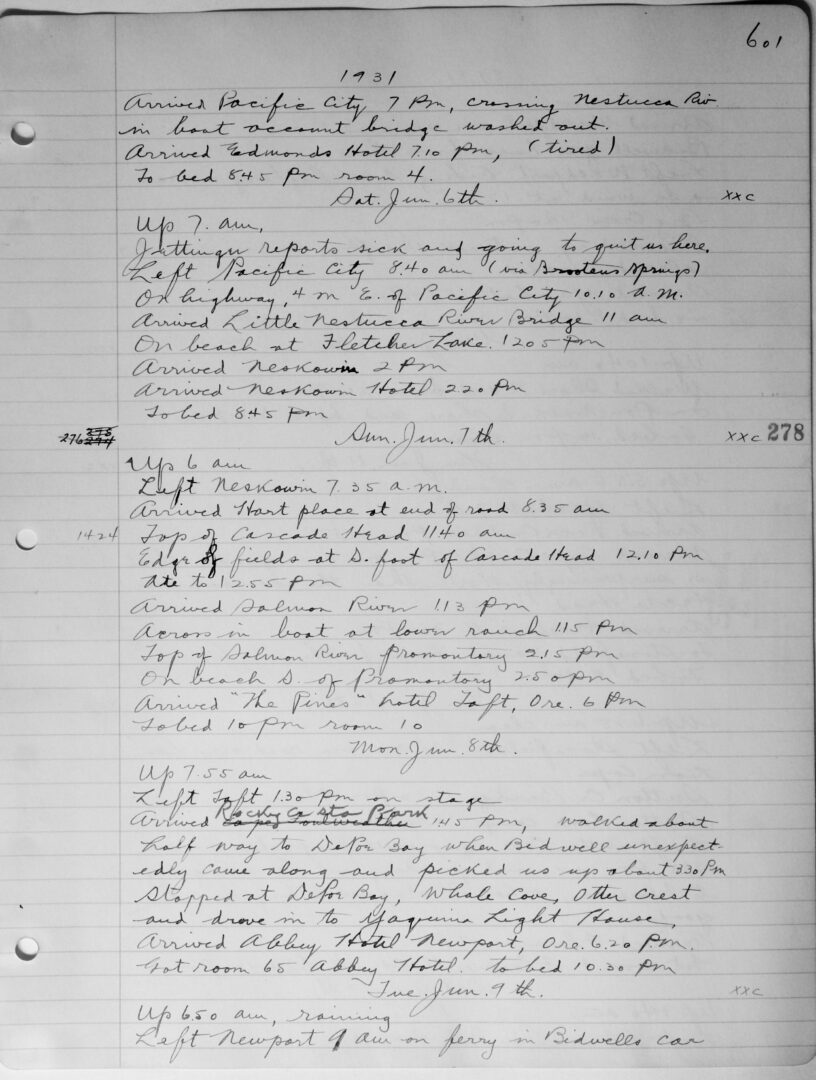 601
1931
Arrived Pacific City 7 Pm, crossing Nestucca Riv.
in boat account bridge washed out.
Arrived Edmonds Hotel 7.10 pm, (tired)
To bed 8.45 Pm room 4.
Sat. Jun. 6th. xxc
Up 7. am,
reports sick and going to quit us here.
Left Pacific City 8.40 am (via Brootens Springs)
On highway, 4 m E. of Pacific City 10.10 a.m.
Arrived Little Nestucca River Bridge 11 am
On beach at Fletcher Lake. 12.05 pm
Arrived Neskowin 2 Pm
Arrived Neskowin Hotel 2.20 Pm
To bed 8.45 Pm
276 275 274 Sun. Jun. 7th. xxc 278
Up 6 am
Left Neskowin 7.35 a.m.
Arrived Hart place at end of road 8.35 am
1424 Top of Cascade Head 11.40 am
Edge of fields at S. foot of Cascade Head 12.10 Pm
Ate to 12.55 Pm
Arrived Salmon River 1.13 pm
Across in boat at lower ranch 1.15 Pm
Top of Salmon River Promontory 2.15 pm
On beach S. of Promontory 2.50 pm
Arrived "The Pines" hotel Taft, Ore. 6 Pm
To bed 10 Pm room 10
Mon. Jun. 8th.
Up 7.55 am
Left Taft 1.30 Pm on stage
Arrived Cape Foulweather Rocky Ca Sta Park 1.45 Pm, walked about
half way to DePoe Bay when Bidwell unexpect-
edly came along and picked us up about 3.30 Pm
Stopped at DePoe Bay, Whale Cove, Otter Crest
and drove in to Yaquina Light House,
Arrived Abbey Hotel Newport, Ore. 6.20 P.m.
Got room 65 Abbey Hotel. to bed 10.30 Pm
Tue. Jun. 9th. xxc
Up 6.50 am, raining
Left Newport 9 am on ferry in Bidwells car